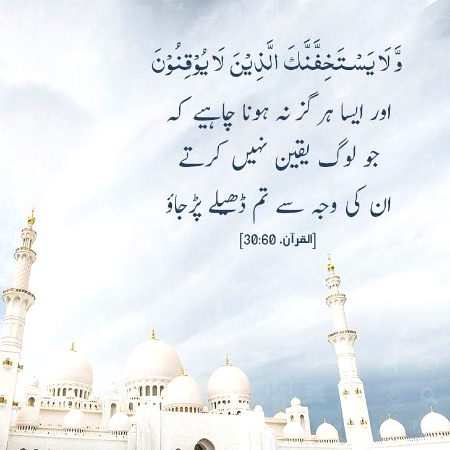 وَّلَا يَسْتَخِفَّنَّكَ الَّذِيْنَ لَا يُوْقِنُوْنَ
اور ایسا ہر گز نہ ہونا چاہیے کہ
جو لوگ یقین نہیں کرتے
ان کی وجہ سے تم ڈھیلے پڑجاؤ
[القرآن، 30:60]